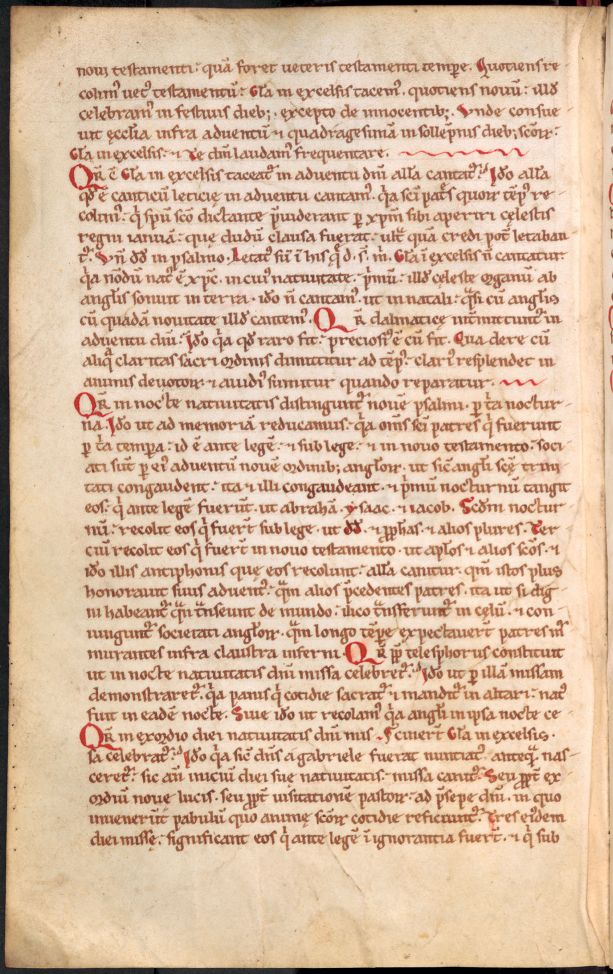 noui testamenti: quã foret ueteris testamenti tempe. Quotiens re-
colim᷒ uet᷒ testamentũ: Gła in excelsis tacem᷒. quotiens nouũ: illđ
celebram᷒ in festiuis dieb;. excepto de innocentib;. Vnde consue
uit ęcclia infra aduentũ ⁊ quadragesimã in sollẽpnis dieb; scõꝝ.
Gła in excelsis. ⁊ Te dm̃ laudam᷒ frequentare.
Qr̃ ẽ Gła in excelsis taceat᷑ in aduentu dñi alla cantat᷑. Ido alla
qđ ẽ canticũ leticię in aduentu cantam᷒. qa sc̃i pat͛s quoꝝ tẽp᷒ re-
colim᷒. q̇ spũ sc̃o dictante p̃uiderant ꝑ xp̃m sibi aperiri cęlestis
regni ianuã. que dudũ clausa fuerat. ult᷑ quã credi pot̃ letaban
t᷑. Vñ dđ in psalmo. Letat᷒ sũ ĩ his q̃ d. s. m̃. Gła ĩ excelsis ñ cantatur
qa nõdũ nat᷒ ẽ xp̃c. in cui᷒ natiuitate. p̃mũ. illđ celeste organũ ab
anglis sonuit in terra. ido ñ cantam᷒. ut in natali. q̃si cũ anglis
cũ quadã nouitate illđ cantem᷒. Qr̃ dalmaticę
aduentu dñi. Ido qa qđ raro fit. preciosi᷒ ẽ cũ fit. Qua de re cũ
aliq̃ claritas sacri ordinis dimittitur ad tẽp᷒. clari᷒ resplendet in
animis deuotoꝝ ⁊ auidi᷒ sumitur quando reparatur.
Qr̃ in nocte natiuitatis distingunt᷑ nouẽ psalmi. ꝑ t̃a noctur
na. Ido ut ad memoriã reducamus. qa om̃s sc̃i patres q̇ fuerunt
ꝑ t̃a tempora. id ẽ ante legẽ. ⁊ sub lege. ⁊ in nouo testamento. soci-
ati sũt ꝑ ei᷒ aduentũ nouẽ ordinib; angłoꝝ. ut sic̃ angłi sc̃ę trini
tati congaudent. ita ⁊ illi congaudeant. ⁊ p̃mũ nocturnũ tangit
eos. q̇ ante legẽ fuer̃t. ut abrahã. ysaac. ⁊ iacob. Scđm noctur
nũ. recolit eos q̇ fuer̃t sub lege. ut dđ. ⁊ ꝓphas. ⁊ alios plures. Ter-
ciũ recolit eos q̇ fuer̃t in nouo testamento. ut apłos ⁊ alios sc̃os. ⁊
ido illis antiphonis que eos recolunt. alla canitur. qm̃ istos plus
honorauit suus aduent᷒. q̃m alios p̃cedentes patres. ita ut si dig-
ni habeant᷑ q̃n t̃nseunt de mundo. ilico t̃nsferunt᷑ in celũ. ⁊ con-
iungunt᷑ societati angłoꝝ. q̃m longo tẽpe expectauer̃t patres nr̃i
murantes infra claustra inferni. Qr̃ p̃p telesphorus constituit
ut in nocte natiuitatis dñi missa celebret᷑. Ido ut ꝑ illã missam
demonstraret᷑. qa panis q̇ cotidie sacrat᷑. ⁊ mandit᷑ in altari. nat᷒
fuit in eadẽ nocte. Siue ido ut recolam᷒. qa angłi in ipsa nocte ce-
Qr̃ in exordio diei natiuitatis dñi mis cĩuer̃t Gła in excelsis.
sa celebrat᷑. Ido qa sic̃ dñs a gabriele fuerat nuntiat᷒. anteq̃ nas-
ceret᷑. sic añ iniciũ diei suę natiuitatis. missa canit᷑. Seu ꝓpt̃ ex-
ordiũ nouę lucis. seu ꝓpt̃ uisitationẽ pastoꝝ. ad p̃sepe dñi. in quo
inuener̃t pabulũ quo animę sc̃oꝝ cotidie reficiunt᷑. Tres eiđem
diei missę. significant eos q̇ ante legẽ ĩ ignorantia fuer̃t. ⁊ q̇ sub